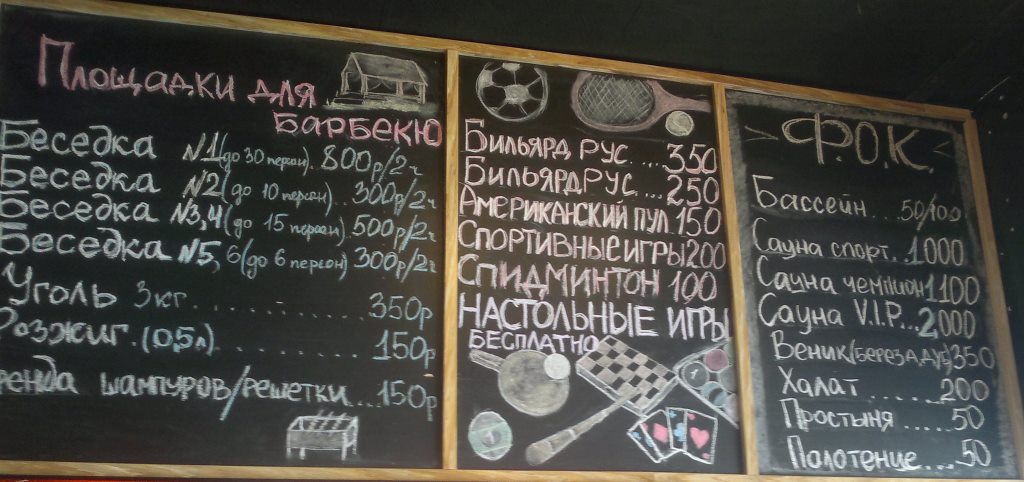 Площадки для
Барбекю
Беседка №1 (до 30 персон). 800р/2ч
Беседка №2 (до 10 персон).. 300р/2ч
Беседка №3,4 (до 15 персон) 500р/2ч
Беседка №5, 6 (до 6 персон) 300р/2ч
Уголь 3 кг............ 350р
Розжиг. (0,5л)............ 150р
ренда шампуров/решетки.... 150р
Бильярд рус..... 350
Бильярд Рус.... 250
Американский пул. 150
Спортивные игры 200
Спидминтон 100
Настольные игры
бесплатно
Ф.О.К.
Бассейн... 50/100
Сауна спорт.. 1000
Сауна чемпион 1100
Сауна V.I.P... 2000
Веник (береза, дуб) 350
Халат...... 200
Простыня.... 50
Палотение.... 50